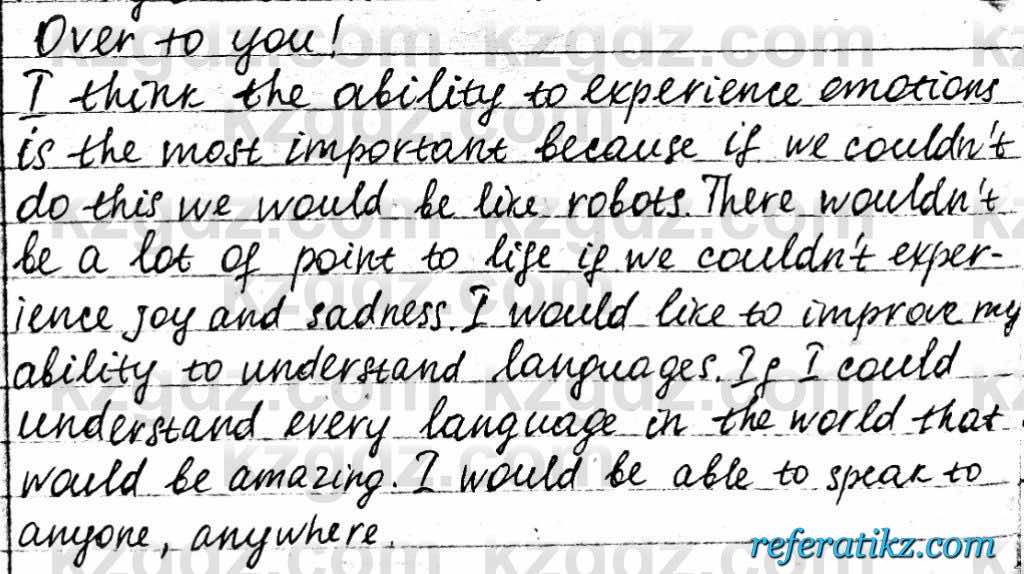 Over to you!
I think the ability to experience emotions
is the most important because if we couldn't
do this we would be like robots. There wouldn't
be a lot of point to life if we couldn't exper-
ience joy and sadness. I would like to improve my
ability to understand languages. If I could
understand every language in the world that
would be amazing. I would be able to speak to
anyone, anywhere.
referatikz.com